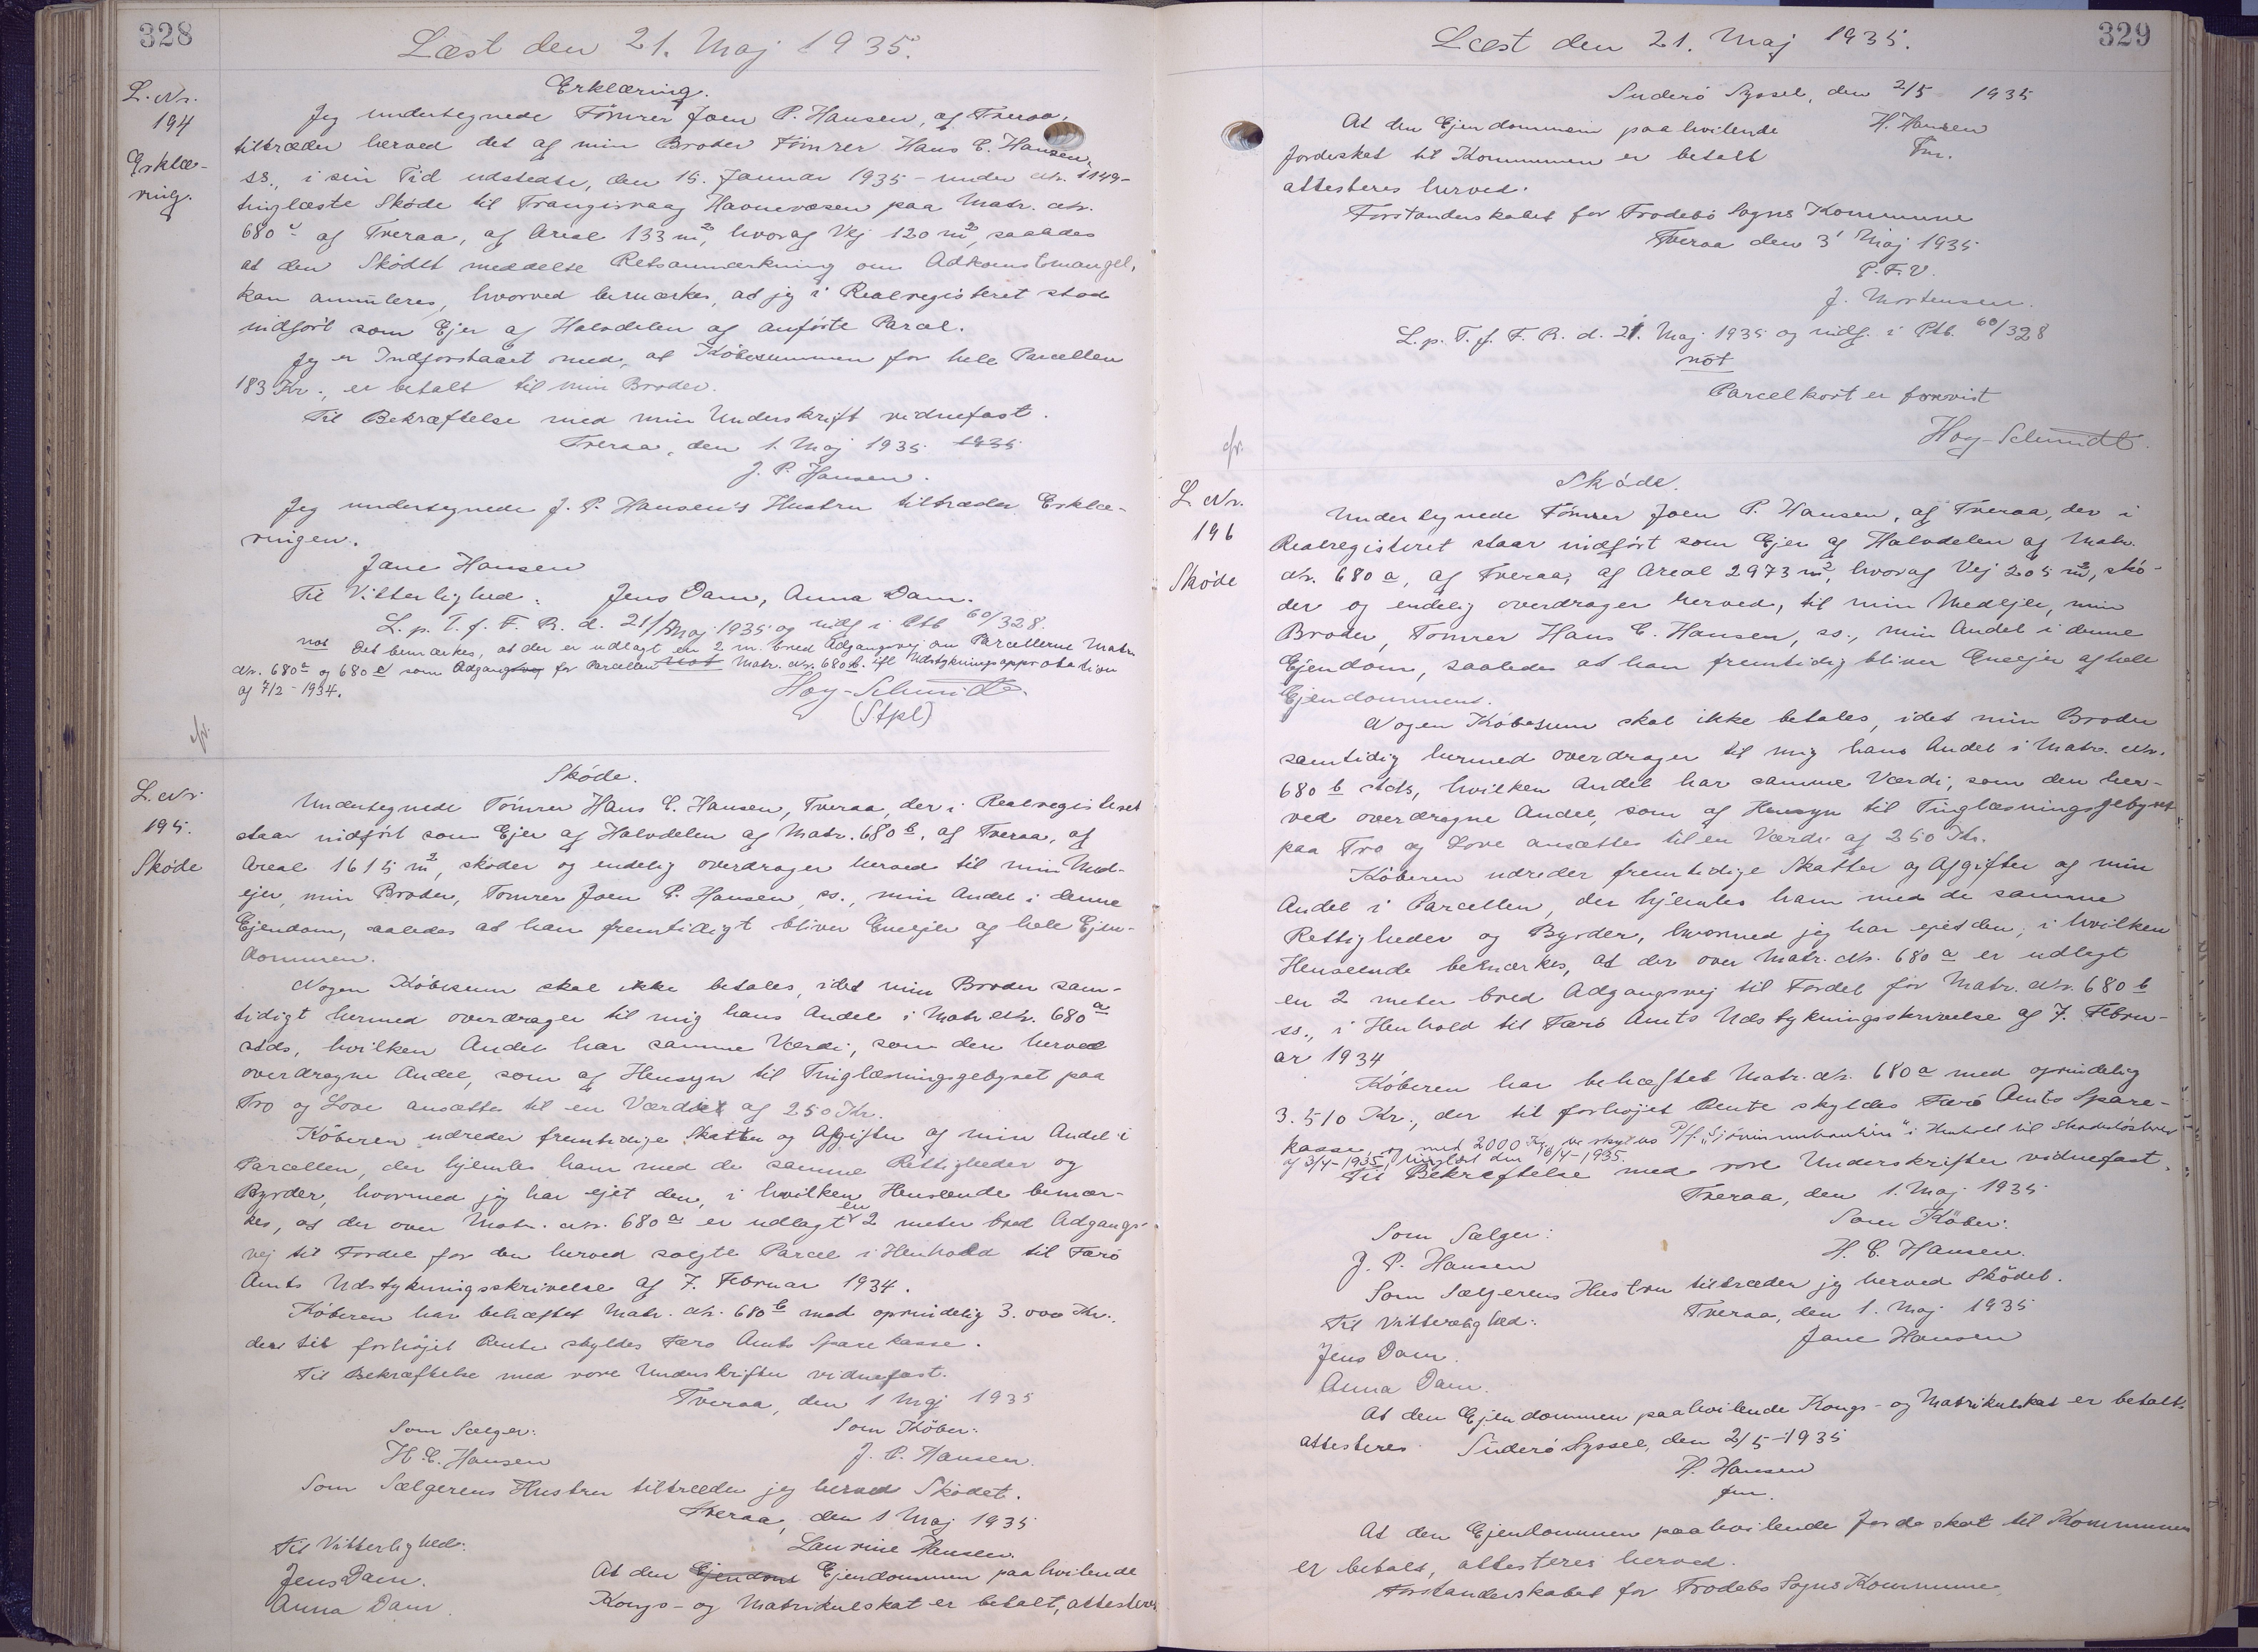 328
Læst den 21. Maj 1935.
L. Nr.
194
Erklæ-
ring.
Erklæring.
Jeg undertegnede Tömrer Joen P. Hansen, af Tveraa,
tiltræder herved det af min Broder Tömrer Hans C. Hansen,
ss., i sin Tid udstedte, den 15. Januar 1935 - under Nr. 1149-
tinglæste Sköde til Trangisvaag Havnevæsen paa Matr. Nr.
680 c af Tveraa, af Areal 133 m², hvoraf Vej 120 m², saaledes
at den Sködet meddelte Retsanmærkning om Adkomstmangel,
kan annulleres, hvorved bemærkes, at jeg i Realregisteret stod
indfört som Ejer af Halvdelen af anförte Parcel.
Jeg er Indforstaaet med, at Köbesummen for hele Parcellen
183 Kr., er betalt til min Broder.
Til Bekræftelse med min Underskrift vidnefast.
Tveraa, den 1. Maj 1935 1935
J. P. Hansen.
Jeg undertegnede J. P. Hansen's Hustru tiltræder Erklæ-
ringen.
Jane Hansen
Til Vitterlighed: Jens Dam, Anna Dam.
L. p. T. f. F. R. d. 21/ Maj 1935 og indf i Ptb 60/328.
not Det bemærkes, at der er udlagt en 2 m. bred Adgangsvej om Parcellerne Matr.
Nr. 680 a og 680 c som Adgangsvej for Parcellen not Matr. Nr. 680 b. ifl Udstykningsapprobation
af 7/2-1934.
Hoy-Schmidt.
(Stpl)
cfr.
L. Nr
195.
Sköde
Sköde.
Undertegnede Tömrer Hans C. Hansen, Tveraa, der i Realregisteret
staar indfört som Ejer af Halvdelen af Matr. 680 b, af Tveraa, af
Areal 1615 m², sköder og endelig overdrager herved til min Med-
ejer, min Broder, Tömrer Joen P. Hansen, ss., min Andel i denne
Ejendom, saaledes at han fremtidigt bliver Eneejer af hele Ejen-
dommen.
Nogen Köbesum skal ikke betales, idet min Broder sam-
tidigt hermed overdrager til mig hans Andel i Matr Nr. 680 a
stds, hvilken Andel har samme Værdi, som den herved
overdragne Andel, som af Hensyn til Tinglæsningsgebyret paa
Tro og Love ansættes til en Værdi af 250 Kr.
Köberen udreder fremtidige Skatter og Afgifter af min Andel i
Parcellen, der hjemles ham med de samme Rettigheder og
Byrder, hvormed jeg har ejet den, i hvilken Henseende bemær-
kes, at der over Matr. Nr. 680 a er udlagt en 2 meter bred Adgangs-
vej til Fordel for den herved solgte Parcel i Henhold til Færö
Amts Udstykningsskrivelse af 7. Februar 1934.
Köberen har behæftet Matr. Nr. 680 b med oprindelig 3.000 Kr.,
der til forhöjet Rente skyldes Færö Amts Sparekasse.
Til Bekræftelse med vore Underskrifter vidnefast.
Tveraa, den 1 Maj 1935
Som Sælger: Som Köber:
H. C. Hansen J. P. Hansen.
Som Sælgerens Hustru tiltræder jeg herved Sködet.
Tveraa, den 1 Maj 1935
Til Vitterlighed: Laurine Hansen.
Jens Dam. At den Ejendom Ejendommen paahvilende
Anna Dam. Kongs- og Matrikulskat er betalt, attesteres
329
Læst den 21. Maj 1935.
Suderö Syssel, den 2/5 1935
At den Ejendommen paahvilende H. Hansen
Jordeskat til Kommunen er betalt fm.
attesteres herved.
Forstanderskabet for Frodebö Sogns Kommune
Tveraa den 3' Maj 1935
P. F. V.
J. Mortensen.
L. p. T. f. F. R. d. 21. Maj 1935 og indf. i Ptb. 60/328
not
Parcelkort er forevist
Hoy-Schmidt.
cfr.
L. Nr.
196
Sköde
Sköde.
Undertegnede Tömrer Joen P. Hansen, af Tveraa, der i
Realregisteret staar indfört som Ejer af Halvdelen af Matr.
Nr. 680 a, af Tveraa, af Areal 2973 m², hvoraf Vej 205 m², skö-
der og endelig overdrager herved, til min Medejer, min
Broder, Tömrer Hans C. Hansen, ss., min Andel i denne
Ejendom, saaledes at han fremtidig bliver Eneejer af hele
Ejendommen.
Nogen Köbesum skal ikke betales, idet min Broder
samtidig hermed overdrager til mig hans Andel i Matr. Nr.
680 b stds, hvilken Andel har samme Værdi, som den her-
ved overdragne Andel, som af Hensyn til Tinglæsningsgebyret
paa Tro og Love ansættes til en Værdi af 250 Kr.
Köberen udreder fremtidige Skatter og Afgifter af min
Andel i Parcellen, der hjemles ham med de samme
Rettigheder og Byrder, hvormed jeg har ejet den, i hvilken
Henseende bemærkes, at der over Matr. Nr. 680 a er udlagt
en 2 meter bred Adgangsvej til Fordel for Matr. Nr. 680 b
ss., i Henhold til Færö Amts Udstykningsskrivelse af 7. Febru-
ar 1934
Köberen har behæftet Matr. Nr. 680 a med oprindelig
3.510 Kr., der til forhöjet Rente skyldes Færö Amts Spare-
kasse, og med 2000 Kr. der skyldes P/f. "Sjóvinnubankin" i Henhold til Skadeslösbrev
af 3/4-1935, tinglæst den 16/4-1935.
Til Bekræftelse med vore Underskrifter vidnefast.
Tveraa, den 1. Maj 1935
Som Sælger: Som Köber:
J. P. Hansen H. C. Hansen.
Som Sælgerens Hustru tiltræder jeg herved Sködet.
Til Vitterlighed: Tveraa, den 1. Maj 1935
Jens Dam. Jane Hansen
Anna Dam.
At den Ejendommen paahvilende Kongs- og Matrikulskat er betalt,
attesteres. Suderö Syssel, den 2/5-1935
H. Hansen
fm.
At den Ejendommen paahvilende Jordeskat til Kommunen
er betalt, attesteres herved.
Forstanderskabet for Frodebö Sogns Kommune,